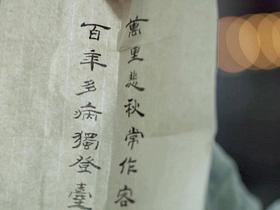 萬里悲秋常作客
百年多病獨登臺